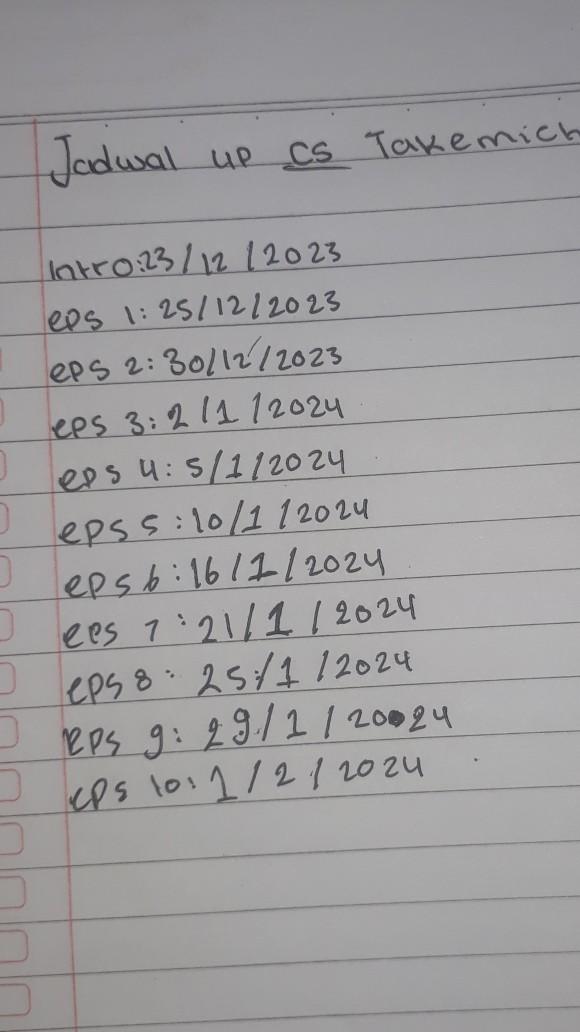 Jadwal up CS Takemich
Intro:23/12/2023
eps 1: 25/12/2023
eps 2: 30/12/2023
eps 3: 2/1/2024
eps 4: 5/1/2024
eps 5: 10/1/2024
eps 6: 16/1/2024
eps 7: 21/1/2024
eps 8: 25/1/2024
eps 9: 29/1/2024
eps 10: 1/2/2024